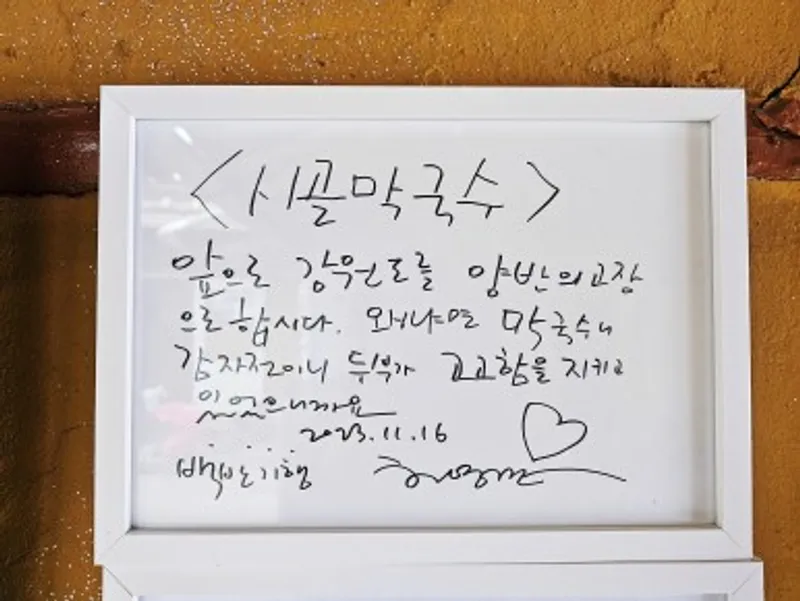 <시골막국수>
앞으로 강원도를 양반의 고장
으로 합시다. 왜냐면 막국수니
감자전이니 두부가 고고함을 지키고
있었으니까요
2023.11.16
백반기행